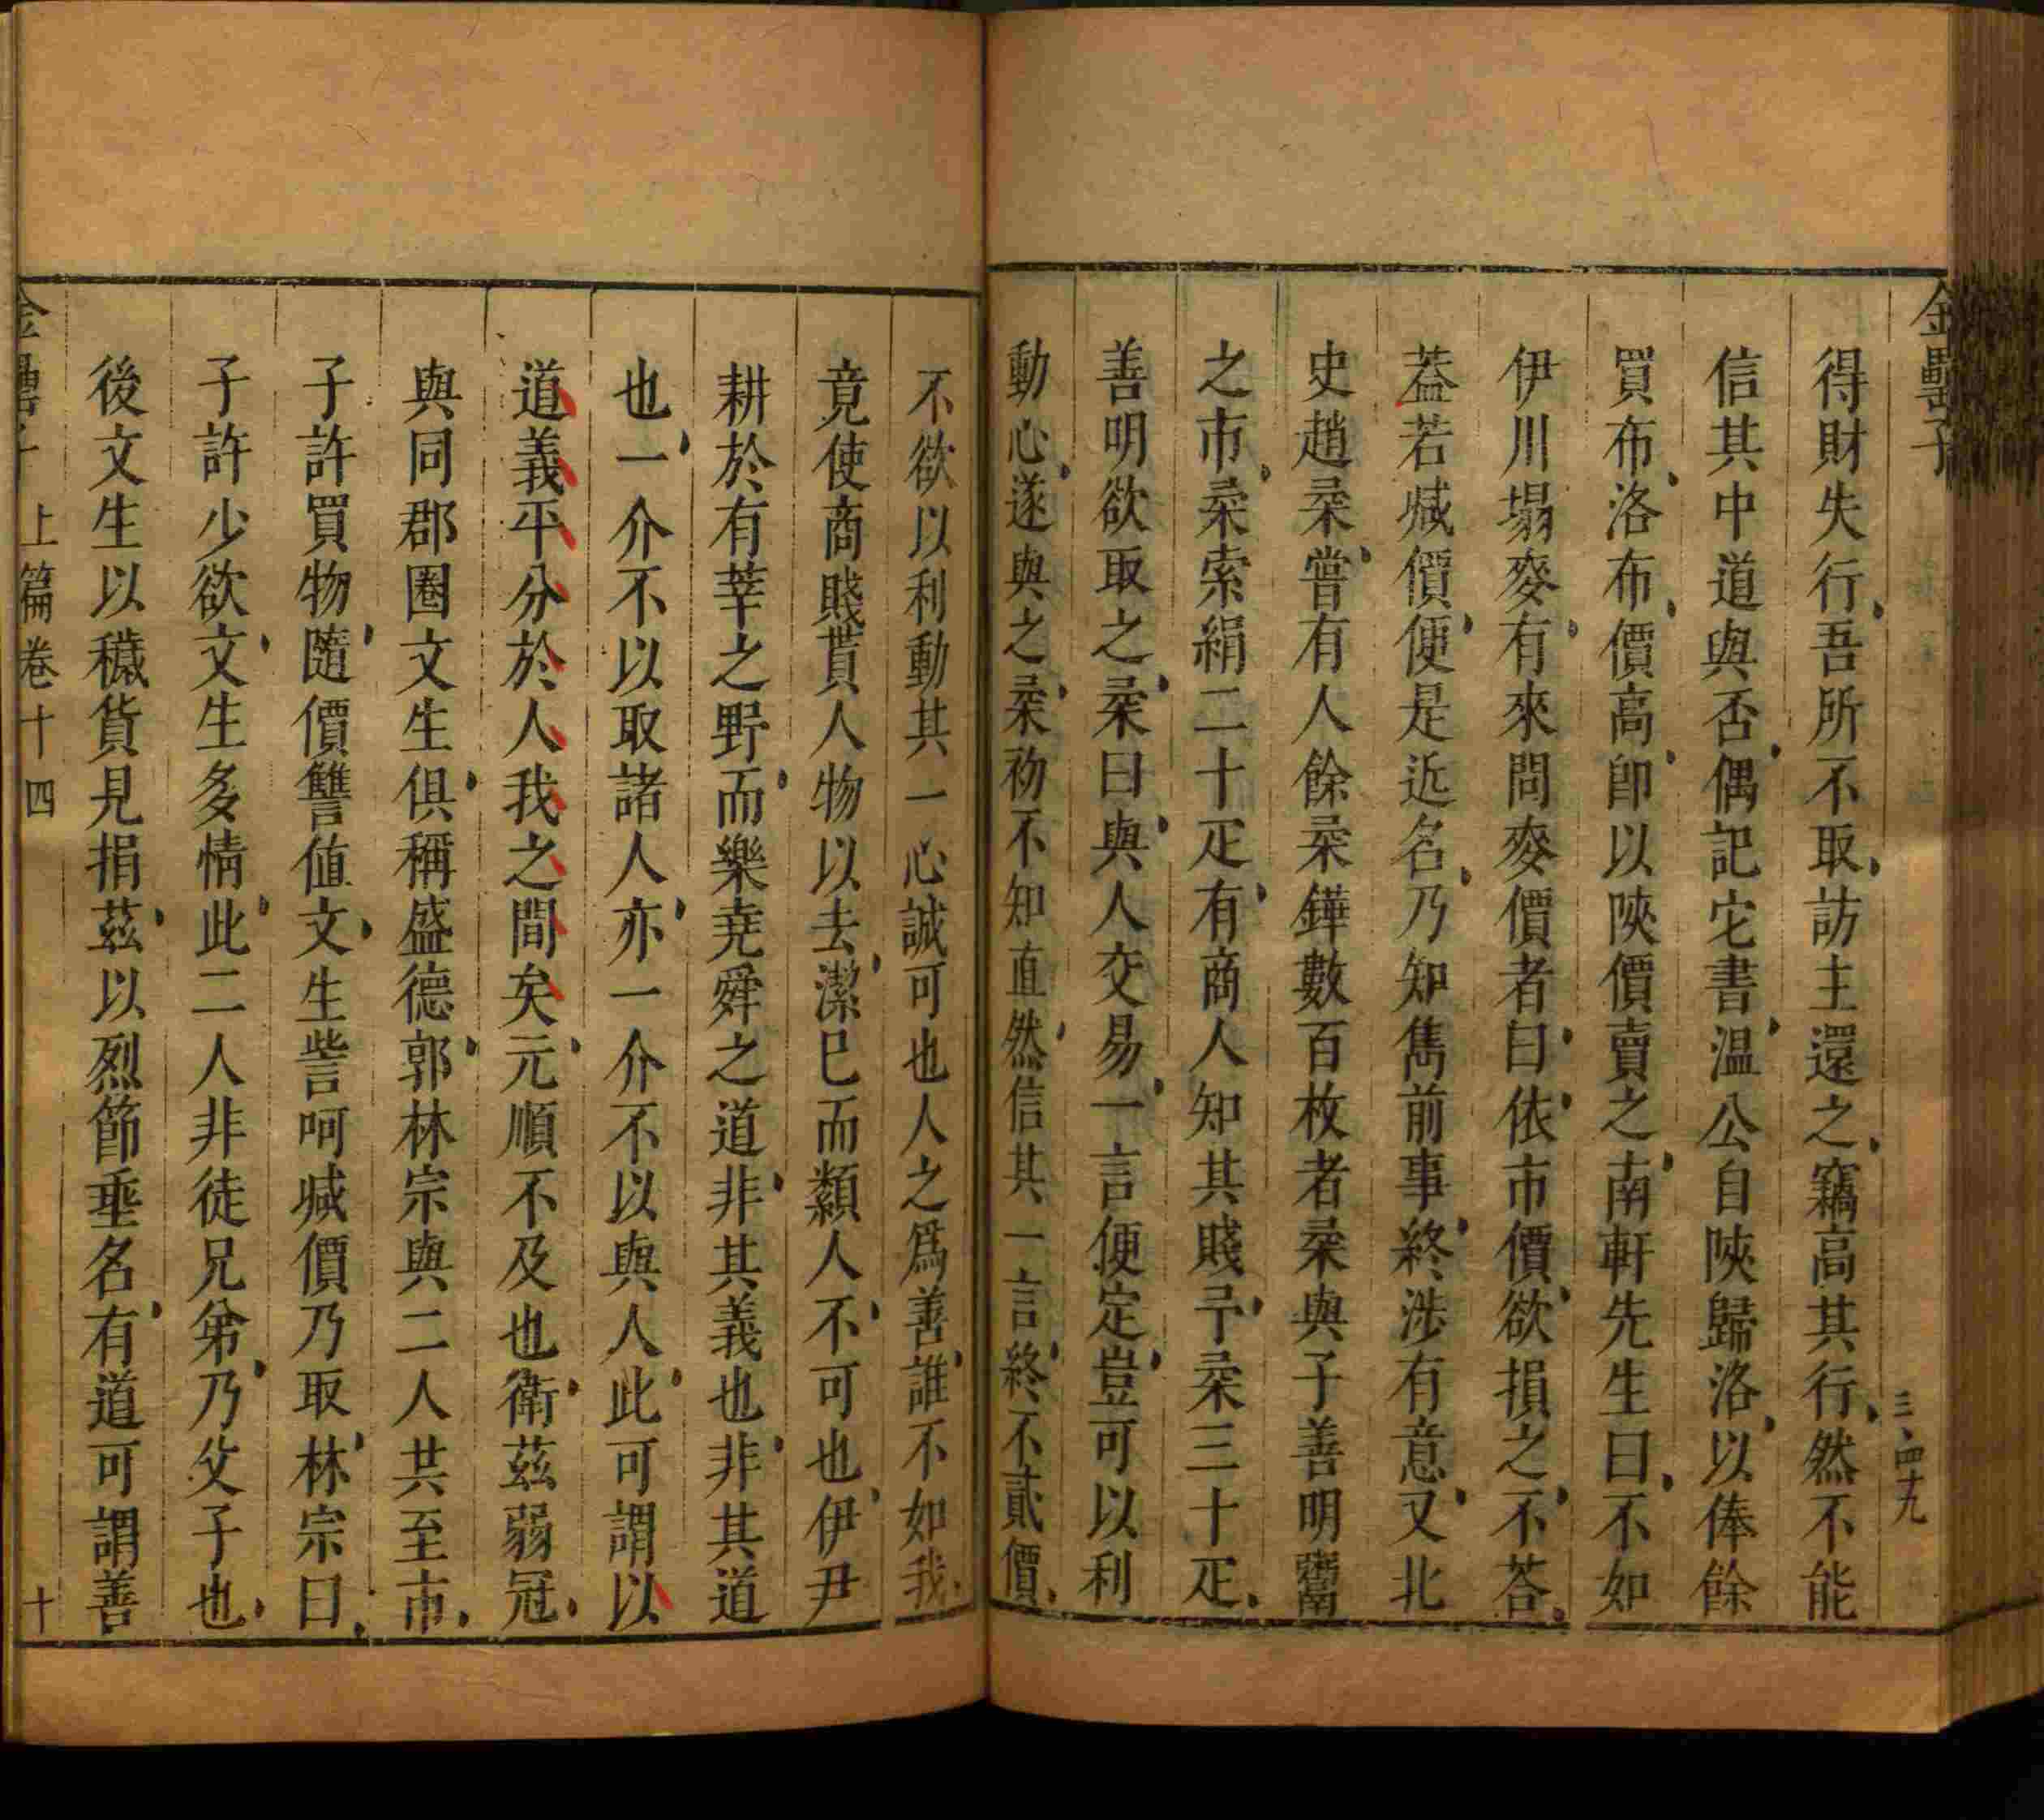 金罍子
得財失行吾所不取訪主還之竊高其行然不能
信其中道與否偶記它書溫公自陝歸洛以俸餘
買布洛布價高卽以陝價賣之南軒先生曰不如
伊川塌麥有來問麥價者曰依市價欲損之不荅
葢若喊價便是近名乃知雋前事終涉有意又北
史趙柔嘗有人餘柔鏵數百枚者柔與子善明鬻
之市柔索絹二十疋有商人知其賤予柔三十疋
善明欲取之柔曰與人交易一言便定豈可以利
動心遂與之柔初不知直然信其一言終不貳價
三四十九
不欲以利動其一心誠可也人之爲善誰不如我
竟使商賤貰人物以去潔已而纇人不可也伊尹
耕於有莘之野而樂堯舜之道非其義也非其道
也一介不以取諸人亦一介不以與人此可謂以
道義平分於人我之間矣元順不及也衛茲弱冠
與同郡圈文生俱稱盛德郭林宗與二人共至市
子許買物隨價讐値文生訾呵喊價乃取林宗曰
子許少欲文生多情此二人非徒兄弟乃父子也
後文生以穢貨見捐茲以烈節垂名有道可謂善
上篇卷十四
十